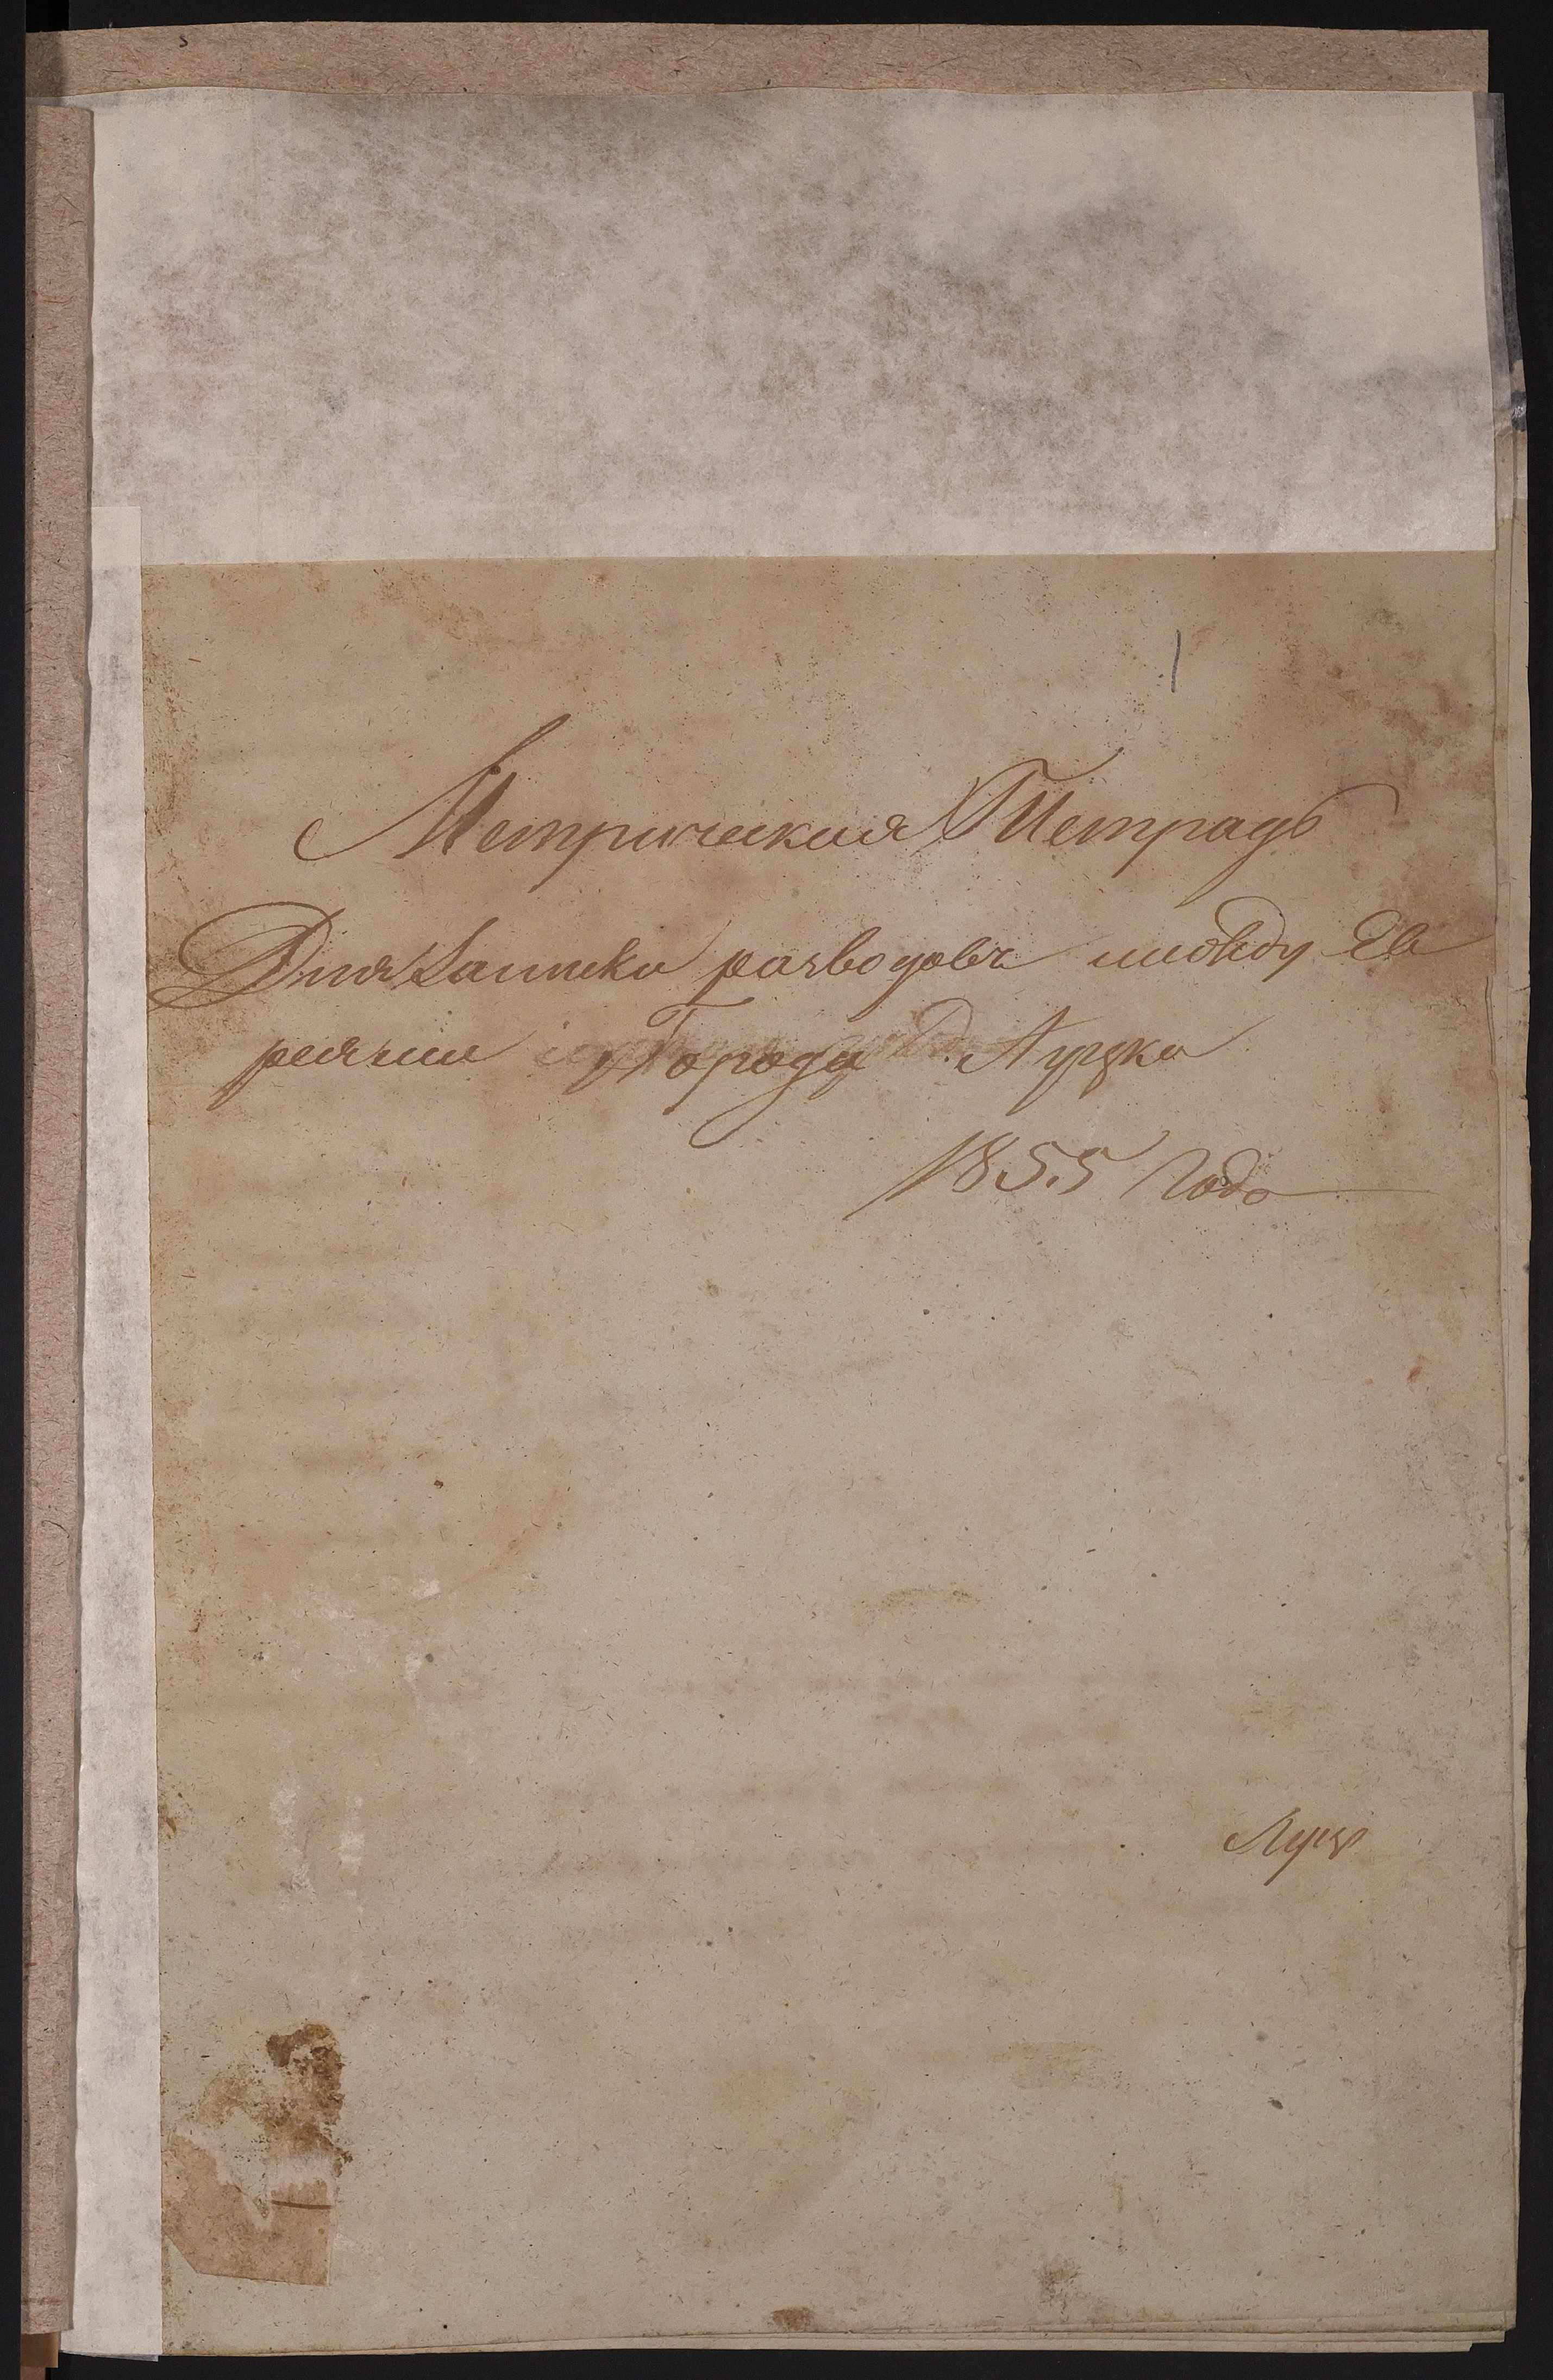 1
Метрическая Тетрадь
Для Записки разводовъ между Ев
реями Города Луцка
1855 Года
Луц